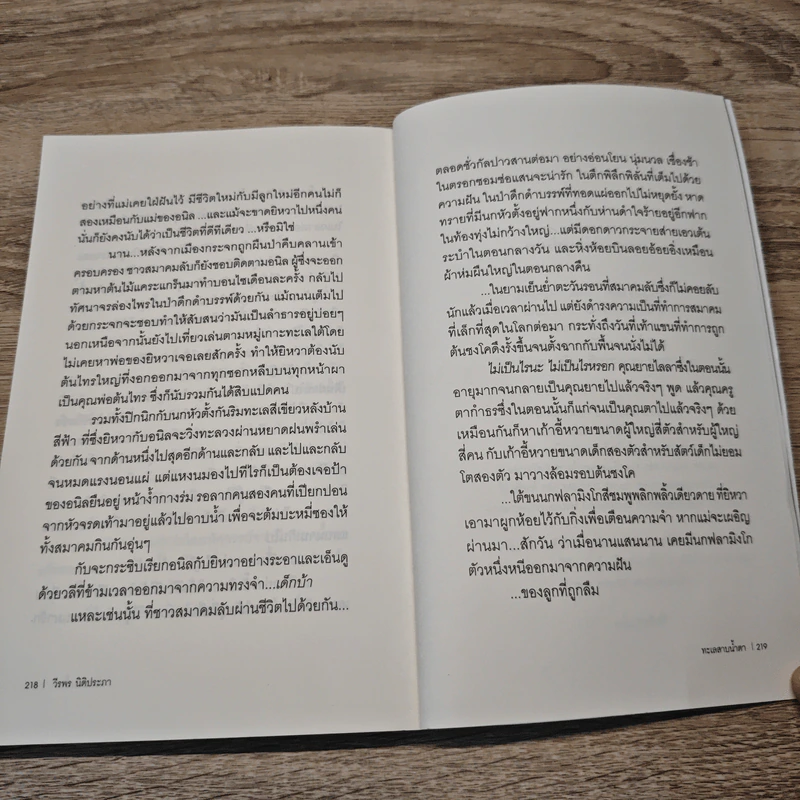 อย่างที่แม่เคยใฝ่ฝันไว้ มีชีวิตใหม่กับมีลูกใหม่อีกคนไม่ก็
สองเหมือนกับแม่ของอนิล ...และแม้จะขาดยิหวาไปหนึ่งคน
นั่นก็ยังคงนับได้ว่าเป็นชีวิตที่ดีทีเดียว ...หรือมิใช่
นาน...หลังจากเมืองกระจกถูกผืนป่าคืบคลานเข้า
ครอบครอง ชาวสมาคมลับก็ยังชอบติดตามอนิล ผู้ซึ่งจะออก
ตามหาต้นไม้แคระแกร็นมาทำบอนไซเดือนละครั้ง กลับไป
ทัศนาจรล่องไพรในป่าดึกดำบรรพ์ด้วยกัน แม้ถนนเต็มไป
ด้วยกระจกจะชอบทำให้สับสนว่ามันเป็นลำธารอยู่บ่อยๆ
นอกเหนือจากนั้นยังไปเที่ยวเล่นตามหมู่เกาะทะเลใต้โดย
ไม่เคยหาพ่อของยิหวาเจอเลยสักครั้ง ทำให้ยิหวาต้องนับ
ต้นไทรใหญ่ที่งอกออกมาจากทุกซอกหลืบบนทุกหน้าผา
เป็นคุณพ่อต้นไทร ซึ่งก็นับรวมกันได้สิบแปดคน
รวมทั้งปิกนิกกับนกหัวตั้งกันริมทะเลสีเขียวหลังบ้าน
สีฟ้า ที่ซึ่งยิหวากับอนิลจะวิ่งทะลวงผ่านหยาดฝนพรำเล่น
ด้วยกัน จากด้านหนึ่งไปสุดอีกด้านและกลับ และไปและกลับ
จนหมดแรงนอนแผ่ แต่แหงนมองไปทีไรก็เป็นต้องเจอป้า
ของอนิลยืนอยู่ หน้าง้ำกางร่ม รอลากคนสองคนที่เปียกปอน
จากหัวจรดเท้ามาอยู่แล้วไปอาบน้ำ เพื่อจะต้มบะหมี่ซองให้
ทั้งสมาคมกินกันอุ่นๆ
กับจะกระซิบเรียกอนิลกับยิหวาอย่างระอาและเอ็นดู
ด้วยวลีที่ข้ามเวลาออกมาจากความทรงจำ...เด็กบ้า
แหละเช่นนั้น ที่ชาวสมาคมลับผ่านชีวิตไปด้วยกัน...
218 | วีรพร นิติประภา
ตลอดชั่วกัลปาวสานต่อมา อย่างอ่อนโยน นุ่มนวล เชื่องช้า
ในตรอกซอมซ่อแสนจะน่ารัก ในตึกพิลึกพิลั่นที่เต็มไปด้วย
ความฝัน ในป่าดึกดำบรรพ์ที่ทอดแผ่ออกไปไม่หยุดยั้ง หาด
ทรายที่มีนกหัวตั้งอยู่ฟากหนึ่งกับห่านดำใจร้ายอยู่อีกฟาก
ในท้องทุ่งไม่กว้างใหญ่...แต่มีดอกดาวกระจายส่ายเอวเต้น
ระบำในตอนกลางวัน และหิ่งห้อยบินลอยอ้อยอิ่งเหมือน
ผ้าห่มผืนใหญ่ในตอนกลางคืน
...ในยามเย็นย่ำตะวันรอนที่สมาคมลับซึ่งก็ไม่คอยลับ
นักแล้วเมื่อเวลาผ่านไป แต่ยังดำรงความเป็นที่ทำการสมาคม
ที่เล็กที่สุดในโลกต่อมา กระทั่งถึงวันที่เท้าแขนที่ทำการถูก
ต้นชงโคดึงรั้งขึ้นจนตั้งฉากกับพื้นจนนั่งไม่ได้
ไม่เป็นไรนะ ไม่เป็นไรหรอก คุณยายไลลาซึ่งในตอนนั้น
อายุมากจนกลายเป็นคุณยายไปแล้วจริงๆ พูด แล้วคุณครู
ตากำธรซึ่งในตอนนั้นก็แก่จนเป็นคุณตาไปแล้วจริงๆ ด้วย
เหมือนกันก็หาเก้าอี้หวายขนาดผู้ใหญ่สี่ตัวสำหรับผู้ใหญ่
สี่คน กับเก้าอี้หวายขนาดเด็กสองตัวสำหรับสัตว์เด็กไม่ยอม
โตสองตัว มาวางล้อมรอบต้นชงโค
...ใต้ขนนกฟลามิงโกสีชมพูพลิกพลิ้วเดียวดาย ที่ยิหวา
เอามาผูกห้อยไว้กับกิ่งเพื่อเตือนความจำ หากแม่จะเผอิญ
ผ่านมา...สักวัน ว่าเมื่อนานแสนนาน เคยมีนกฟลามิงโก
ตัวหนึ่งหนีออกมาจากความฝัน
...ของลูกที่ถูกลืม
ทะเลสาบน้ำตา | 219